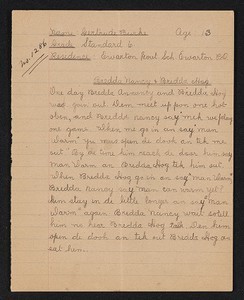 No 1286
Name Gertrude Burke Age 13
Grade Standard 6
Residence Ewarton Govt Sch. Ewarton P.O.
Bredda Nancy & Bredda Hog
One day Bredda Annancy and Bredda Hog
was goin out. Dem meet up pon one hot
oben, and Bredda Nancy say mek we play
one game. When me go in an say man
warm" you mus open de dook an tek me
out. By de time him reach de door him say
man warm an Bredda Hog tek him out.
When Bredda Hog go een an say "man warm"
Bredda Nancy say, man can warm yet?
him stay in de little longer an say "man
warm" again Bredda Nancy wait so till
him no hear Bredda Hog talk. Den him
open de dook an tek out Bredda Hog an
eat him.